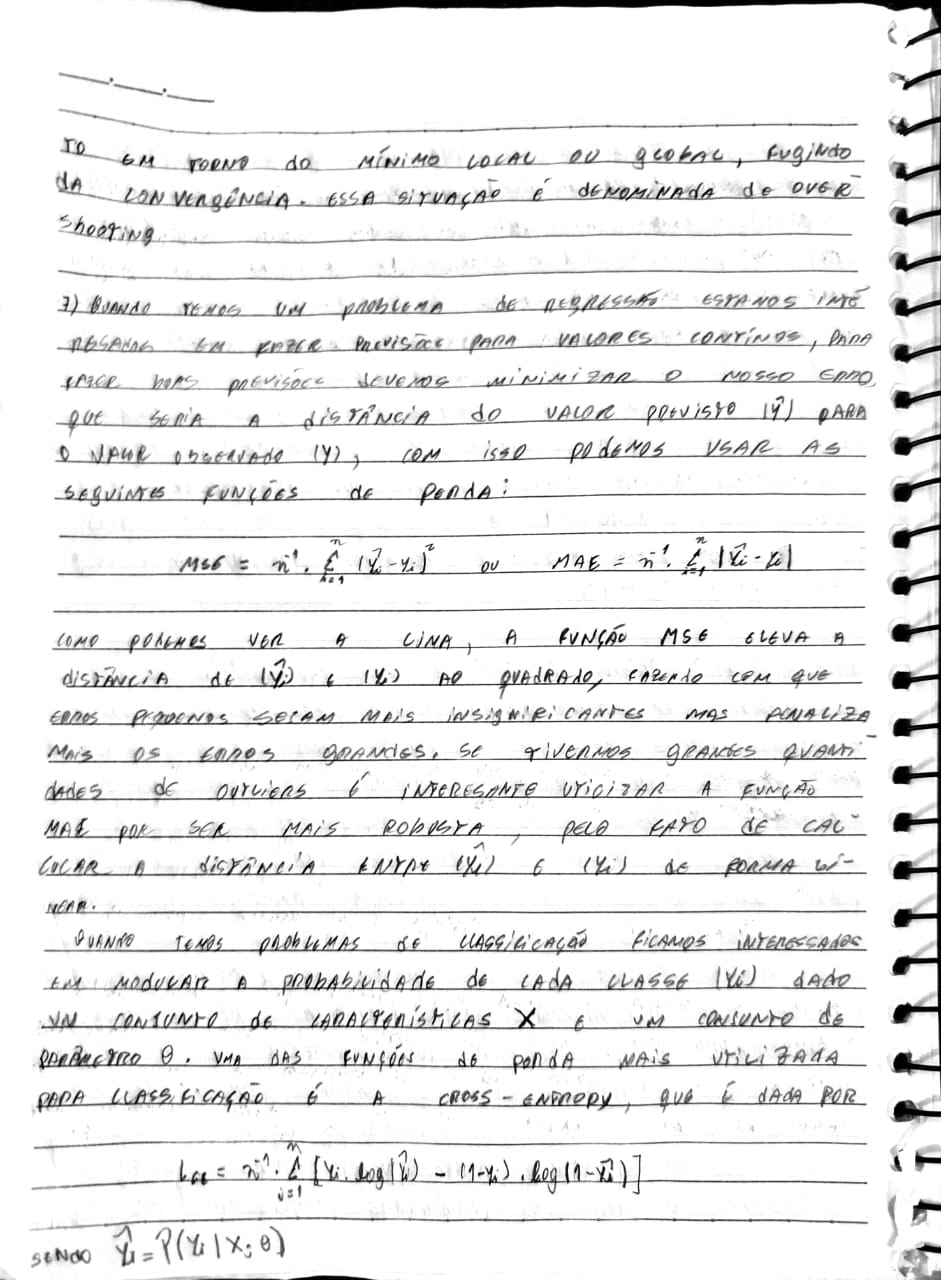 TO EM TORNO DO MÍNIMO LOCAL OU GLOBAL, FUGINDO
DA CONVERGÊNCIA. ESSA SITUAÇÃO É DENOMINADA DE OVER-
SHOOTING.
7) QUANDO TEMOS UM PROBLEMA DE REGRESSÃO ESTAMOS INTE
RESADOS EM FAZER PREVISÕES PARA VALORES CONTÍNOS, PARA
FAZER BOAS PREVISÕES DEVEMOS MINIMIZAR O NOSSO ERRO,
QUE SERIA A DISTÂNCIA DO VALOR PREVISTO (Ŷ) PARA
O VALOR OBSERVADO (Y), COM ISSO PODEMOS USAR AS
SEGUINTES FUNÇÕES DE PERDA:
MSE = n⁻¹ . Σⁿᵢ₌₁ (Ŷi - Yi)² OU MAE = n⁻¹ . Σⁿᵢ₌₁ |Ŷi - Yi|
COMO PODEMOS VER A CIMA, A FUNÇÃO MSE ELEVA A
DISTÂNCIA DE (Ŷi) E (Yi) AO QUADRADO, FAZENDO COM QUE
ERROS PEQUENOS SEJAM MAIS INSIGNIFICANTES MAS PENALIZA
MAIS OS ERROS GRANDES. SE TIVERMOS GRANDES QUANTI-
DADES DE OUTLIERS É INTERESANTE UTILIZAR A FUNÇÃO
MAE POR SER MAIS ROBUSTA, PELO FATO DE CAL-
CULAR A DISTÂNCIA ENTRE (Ŷi) E (Yi) DE FORMA LI-
NEAR.
QUANDO TEMOS PROBLEMAS DE CLASSIFICAÇÃO FICAMOS INTERESSADOS
EM MODELAR A PROBABILIDADE DE CADA CLASSE (Yi) DADO
UM CONJUNTO DE CARACTERÍSTICAS X E UM CONJUNTO DE
PARÂMETRO θ. UMA DAS FUNÇÕES DE PERDA MAIS UTILIZADA
PARA CLASSIFICAÇÃO É A CROSS-ENTROPY, QUE É DADA POR
LCE = n⁻¹ . Σⁿᵢ₌₁ [Yi . log(Ŷi) - (1-Yi) . log(1-Ŷi)]
SENDO Ŷi = P(Yi | X; θ)